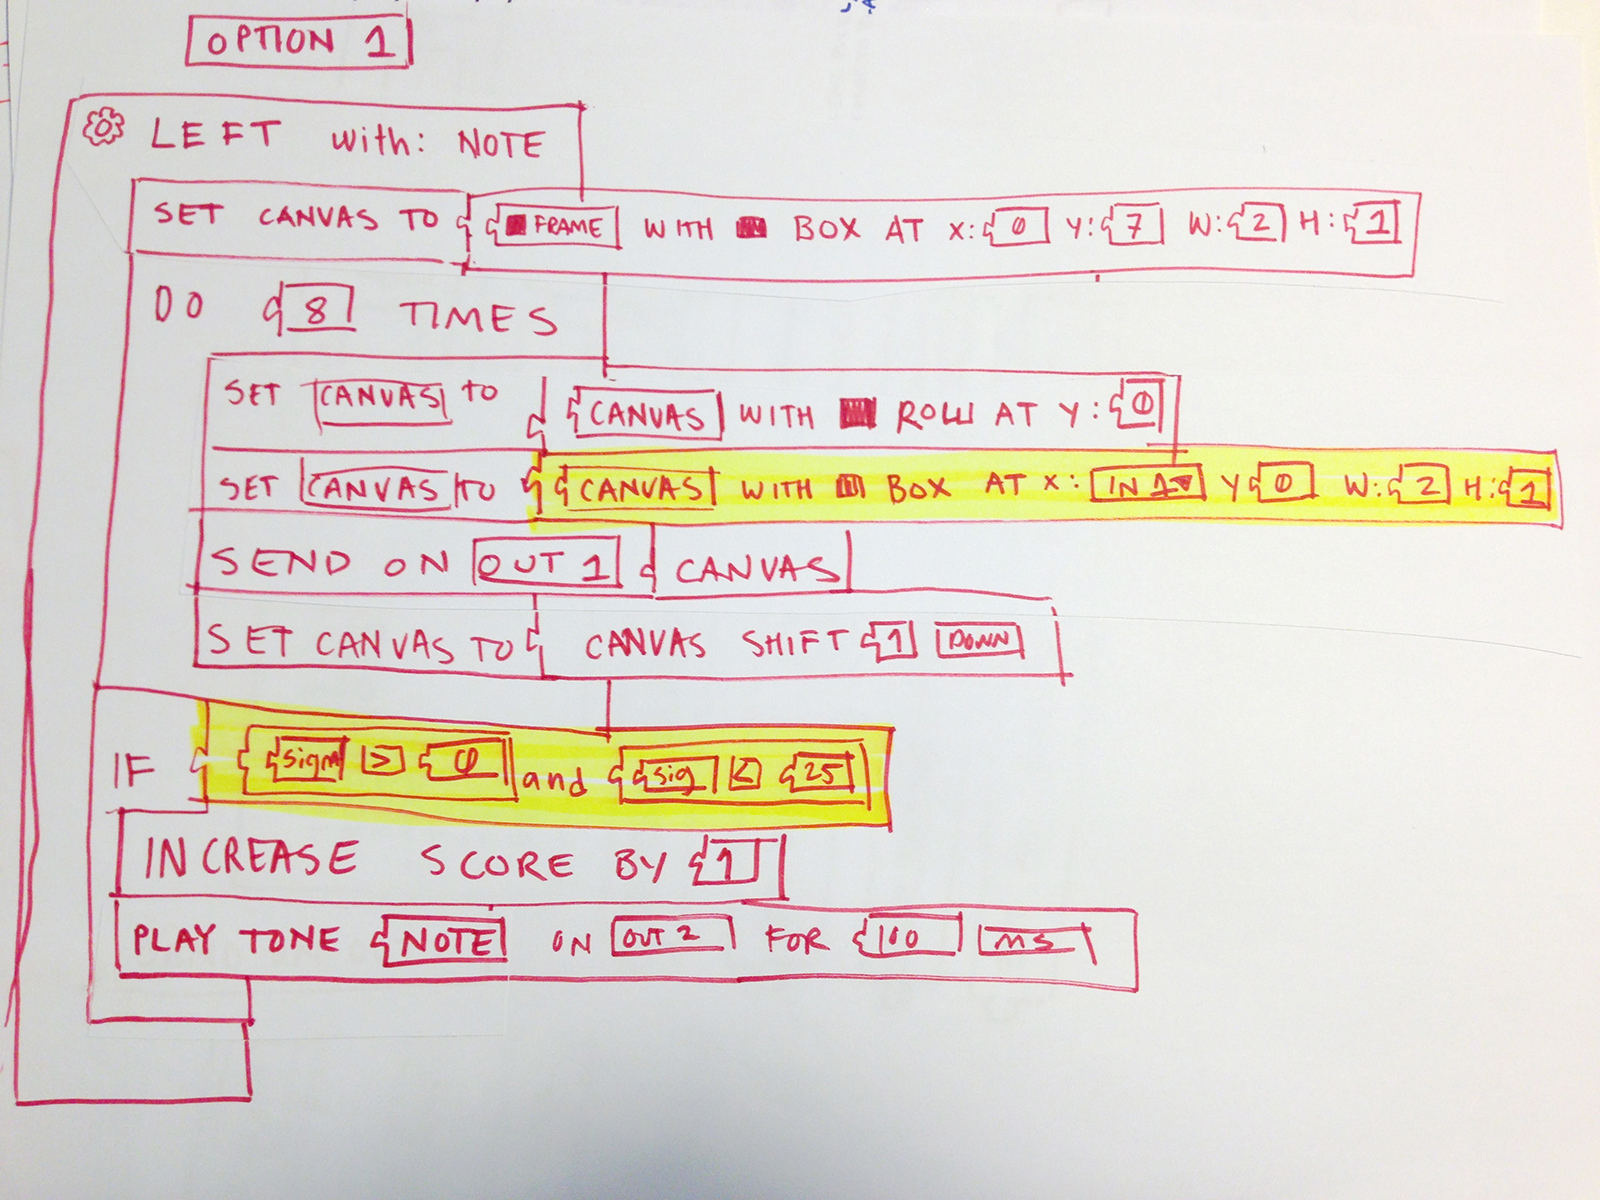 OPTION 1
LEFT with: NOTE
SET CANVAS TO FRAME WITH BOX AT X: 0 Y: 7 W: 2 H: 1
DO 8 TIMES
SET CANVAS TO CANVAS WITH ROW AT Y: 0
SET CANVAS TO CANVAS WITH BOX AT X: IN 1 Y 0 W: 2 H: 1
SEND ON OUT 1 CANVAS
SET CANVAS TO CANVAS SHIFT 1 DOWN
IF > 0 and sig < 25
INCREASE SCORE BY 1
PLAY TONE NOTE ON OUT 2 FOR 100 MS